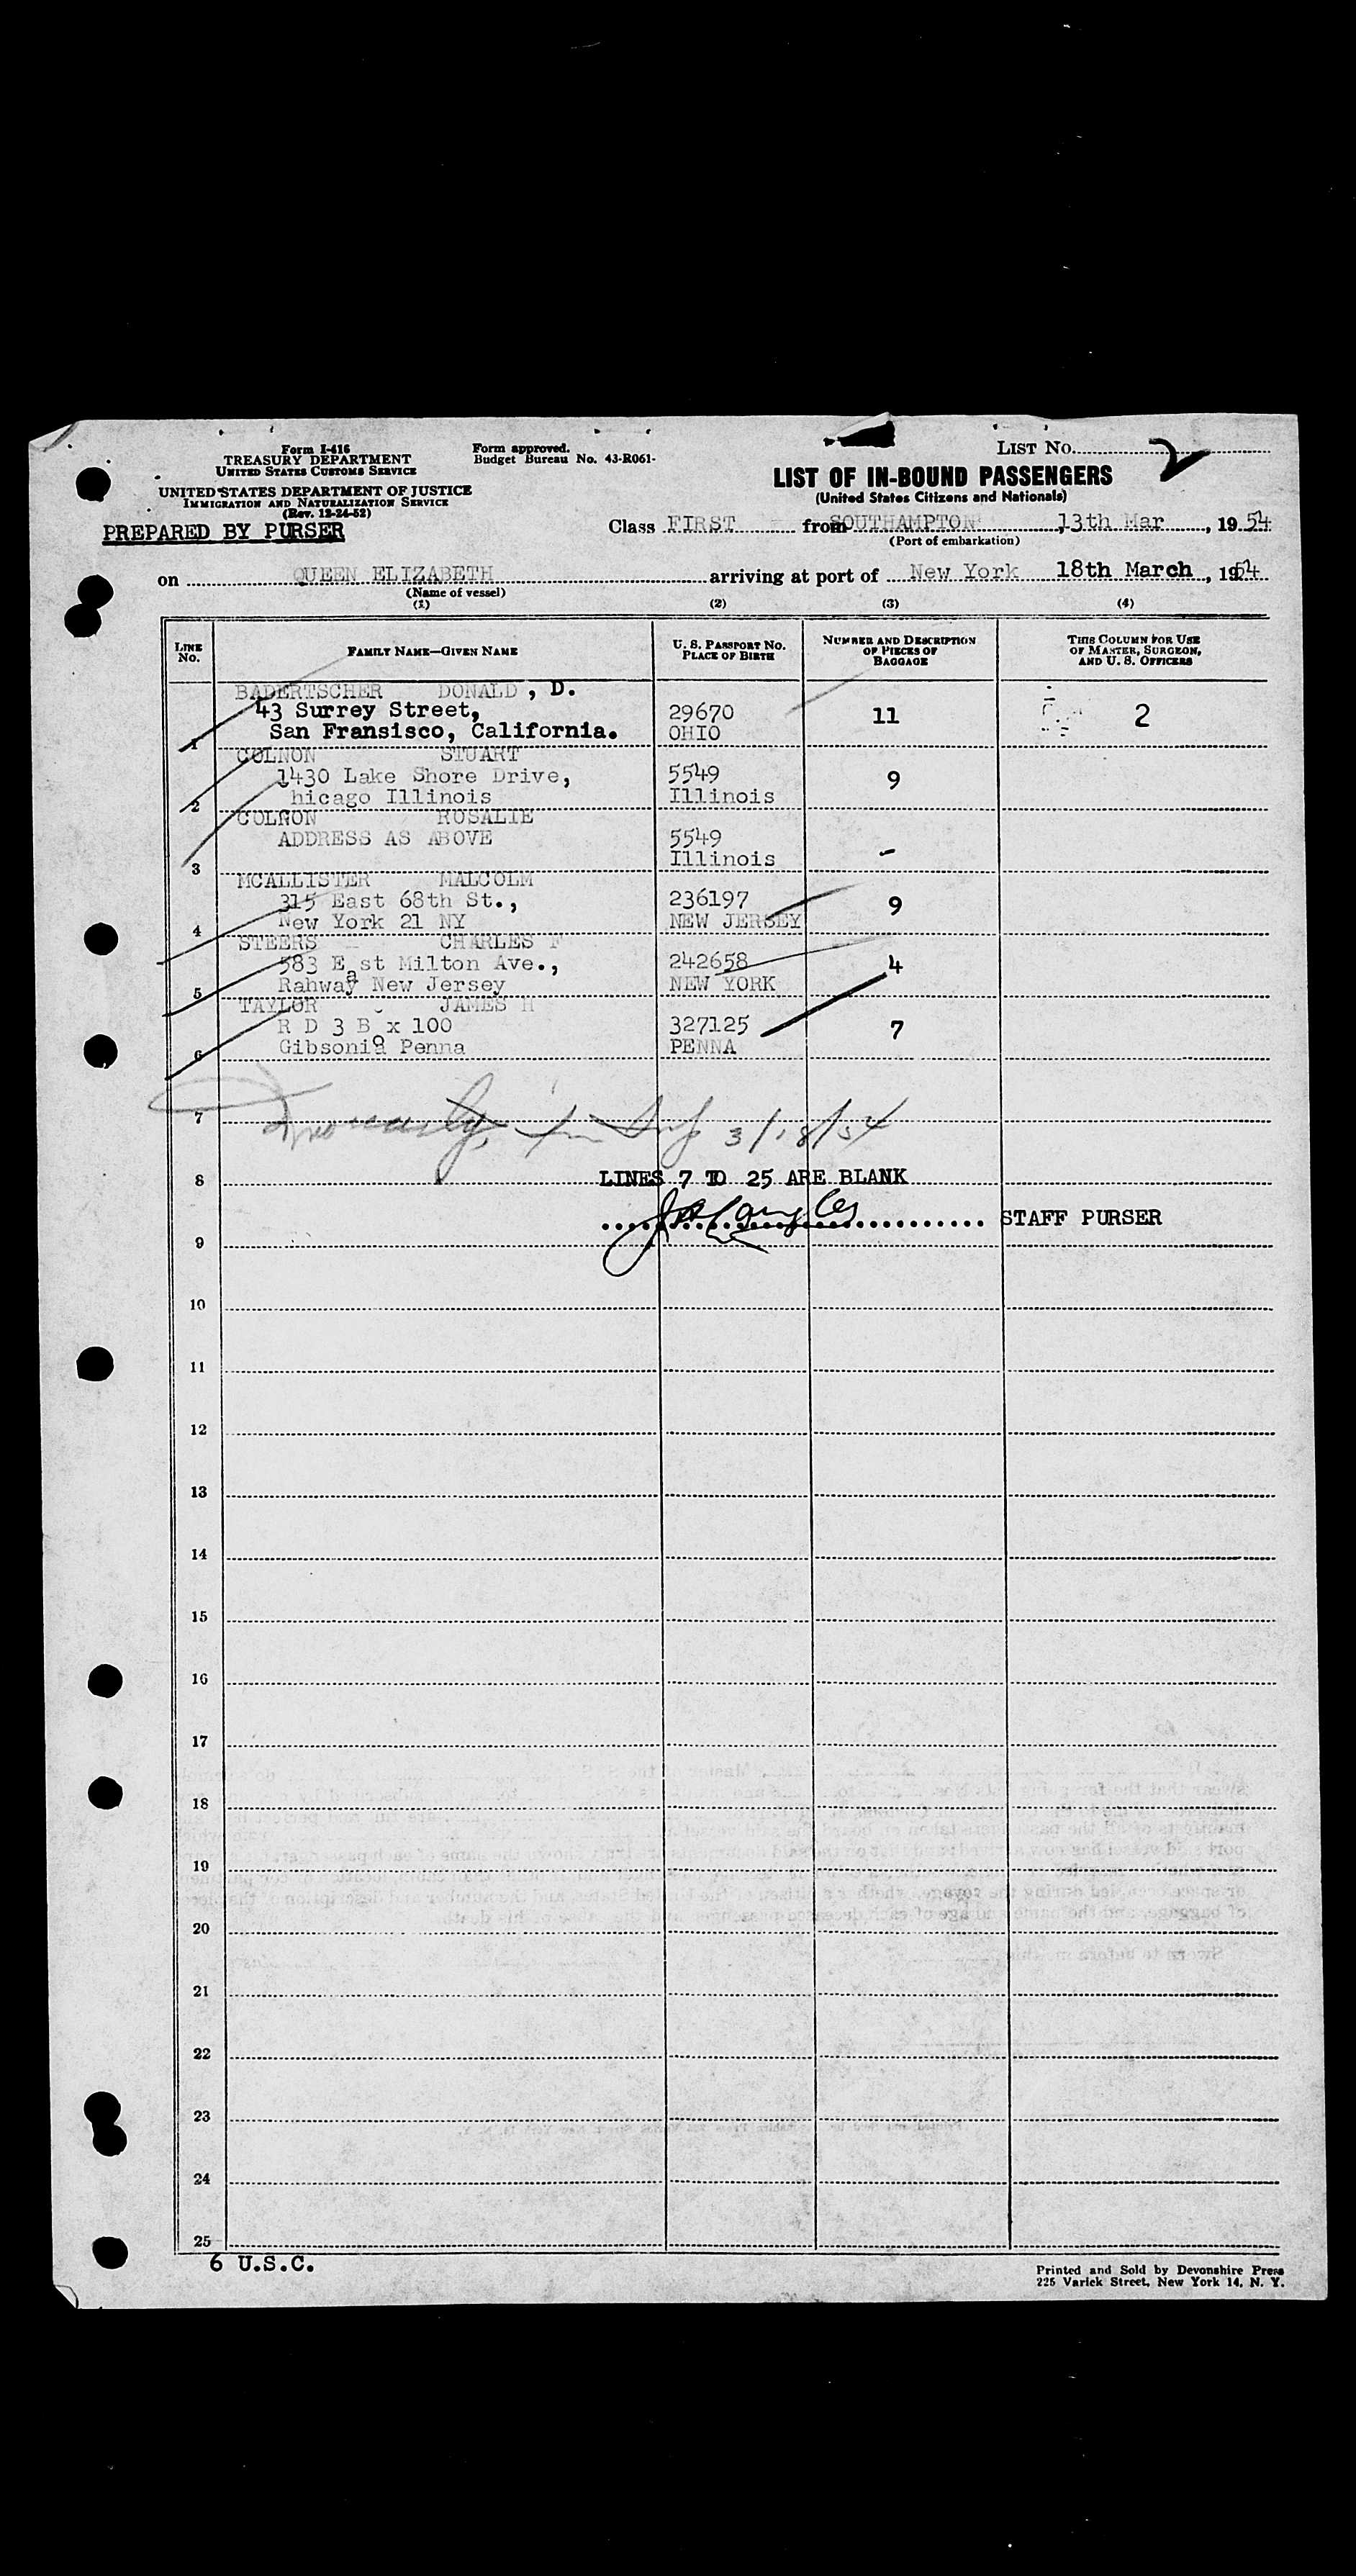 Form I-416
TREASURY DEPARTMENT
UNITED STATES CUSTOMS SERVICE
Form approved.
Budget Bureau No. 43-R061-
LIST NO. 2
LIST OF IN-BOUND PASSENGERS
(United States Citizens and Nationals)
UNITED STATES DEPARTMENT OF JUSTICE
IMMIGRATION AND NATURALIZATION SERVICE
(Rev. 12-24-52)
PREPARED BY PURSER
Class FIRST from SOUTHAMPTON, 13th Mar, 1954
(Port of embarkation)
on QUEEN ELIZABETH arriving at port of New York 18th March, 1954
(Name of vessel)
(1) (2) (3) (4)
LINE NO. FAMILY NAME—GIVEN NAME U. S. PASSPORT NO. PLACE OF BIRTH NUMBER AND DESCRIPTION OF PIECES OF BAGGAGE THIS COLUMN FOR USE OF MASTER, SURGEON, AND U. S. OFFICERS
BADERTSCHER DONALD, D.
43 Surrey Street, 29670 11 2
1 San Fransisco, California. OHIO
COLNON STUART
1430 Lake Shore Drive, 5549 9
2 hicago Illinois Illinois
COLNON ROSALIE
ADDRESS AS ABOVE 5549
3 Illinois -
MCALLISTER MALCOLM
315 East 68th St., 236197 9
4 New York 21 NY NEW JERSEY
STEERS CHARLES F
583 East Milton Ave., 242658 4
5 Rahway New Jersey NEW YORK
TAYLOR JAMES H
R D 3 Box 100 327125 7
6 Gibsonia Penna PENNA
7 3/18/54
8 LINES 7 TO 25 ARE BLANK
STAFF PURSER
9
10
11
12
13
14
15
16
17
18
19
20
21
22
23
24
25
6 U.S.C.
Printed and Sold by Devonshire Press
225 Varick Street, New York 14, N. Y.